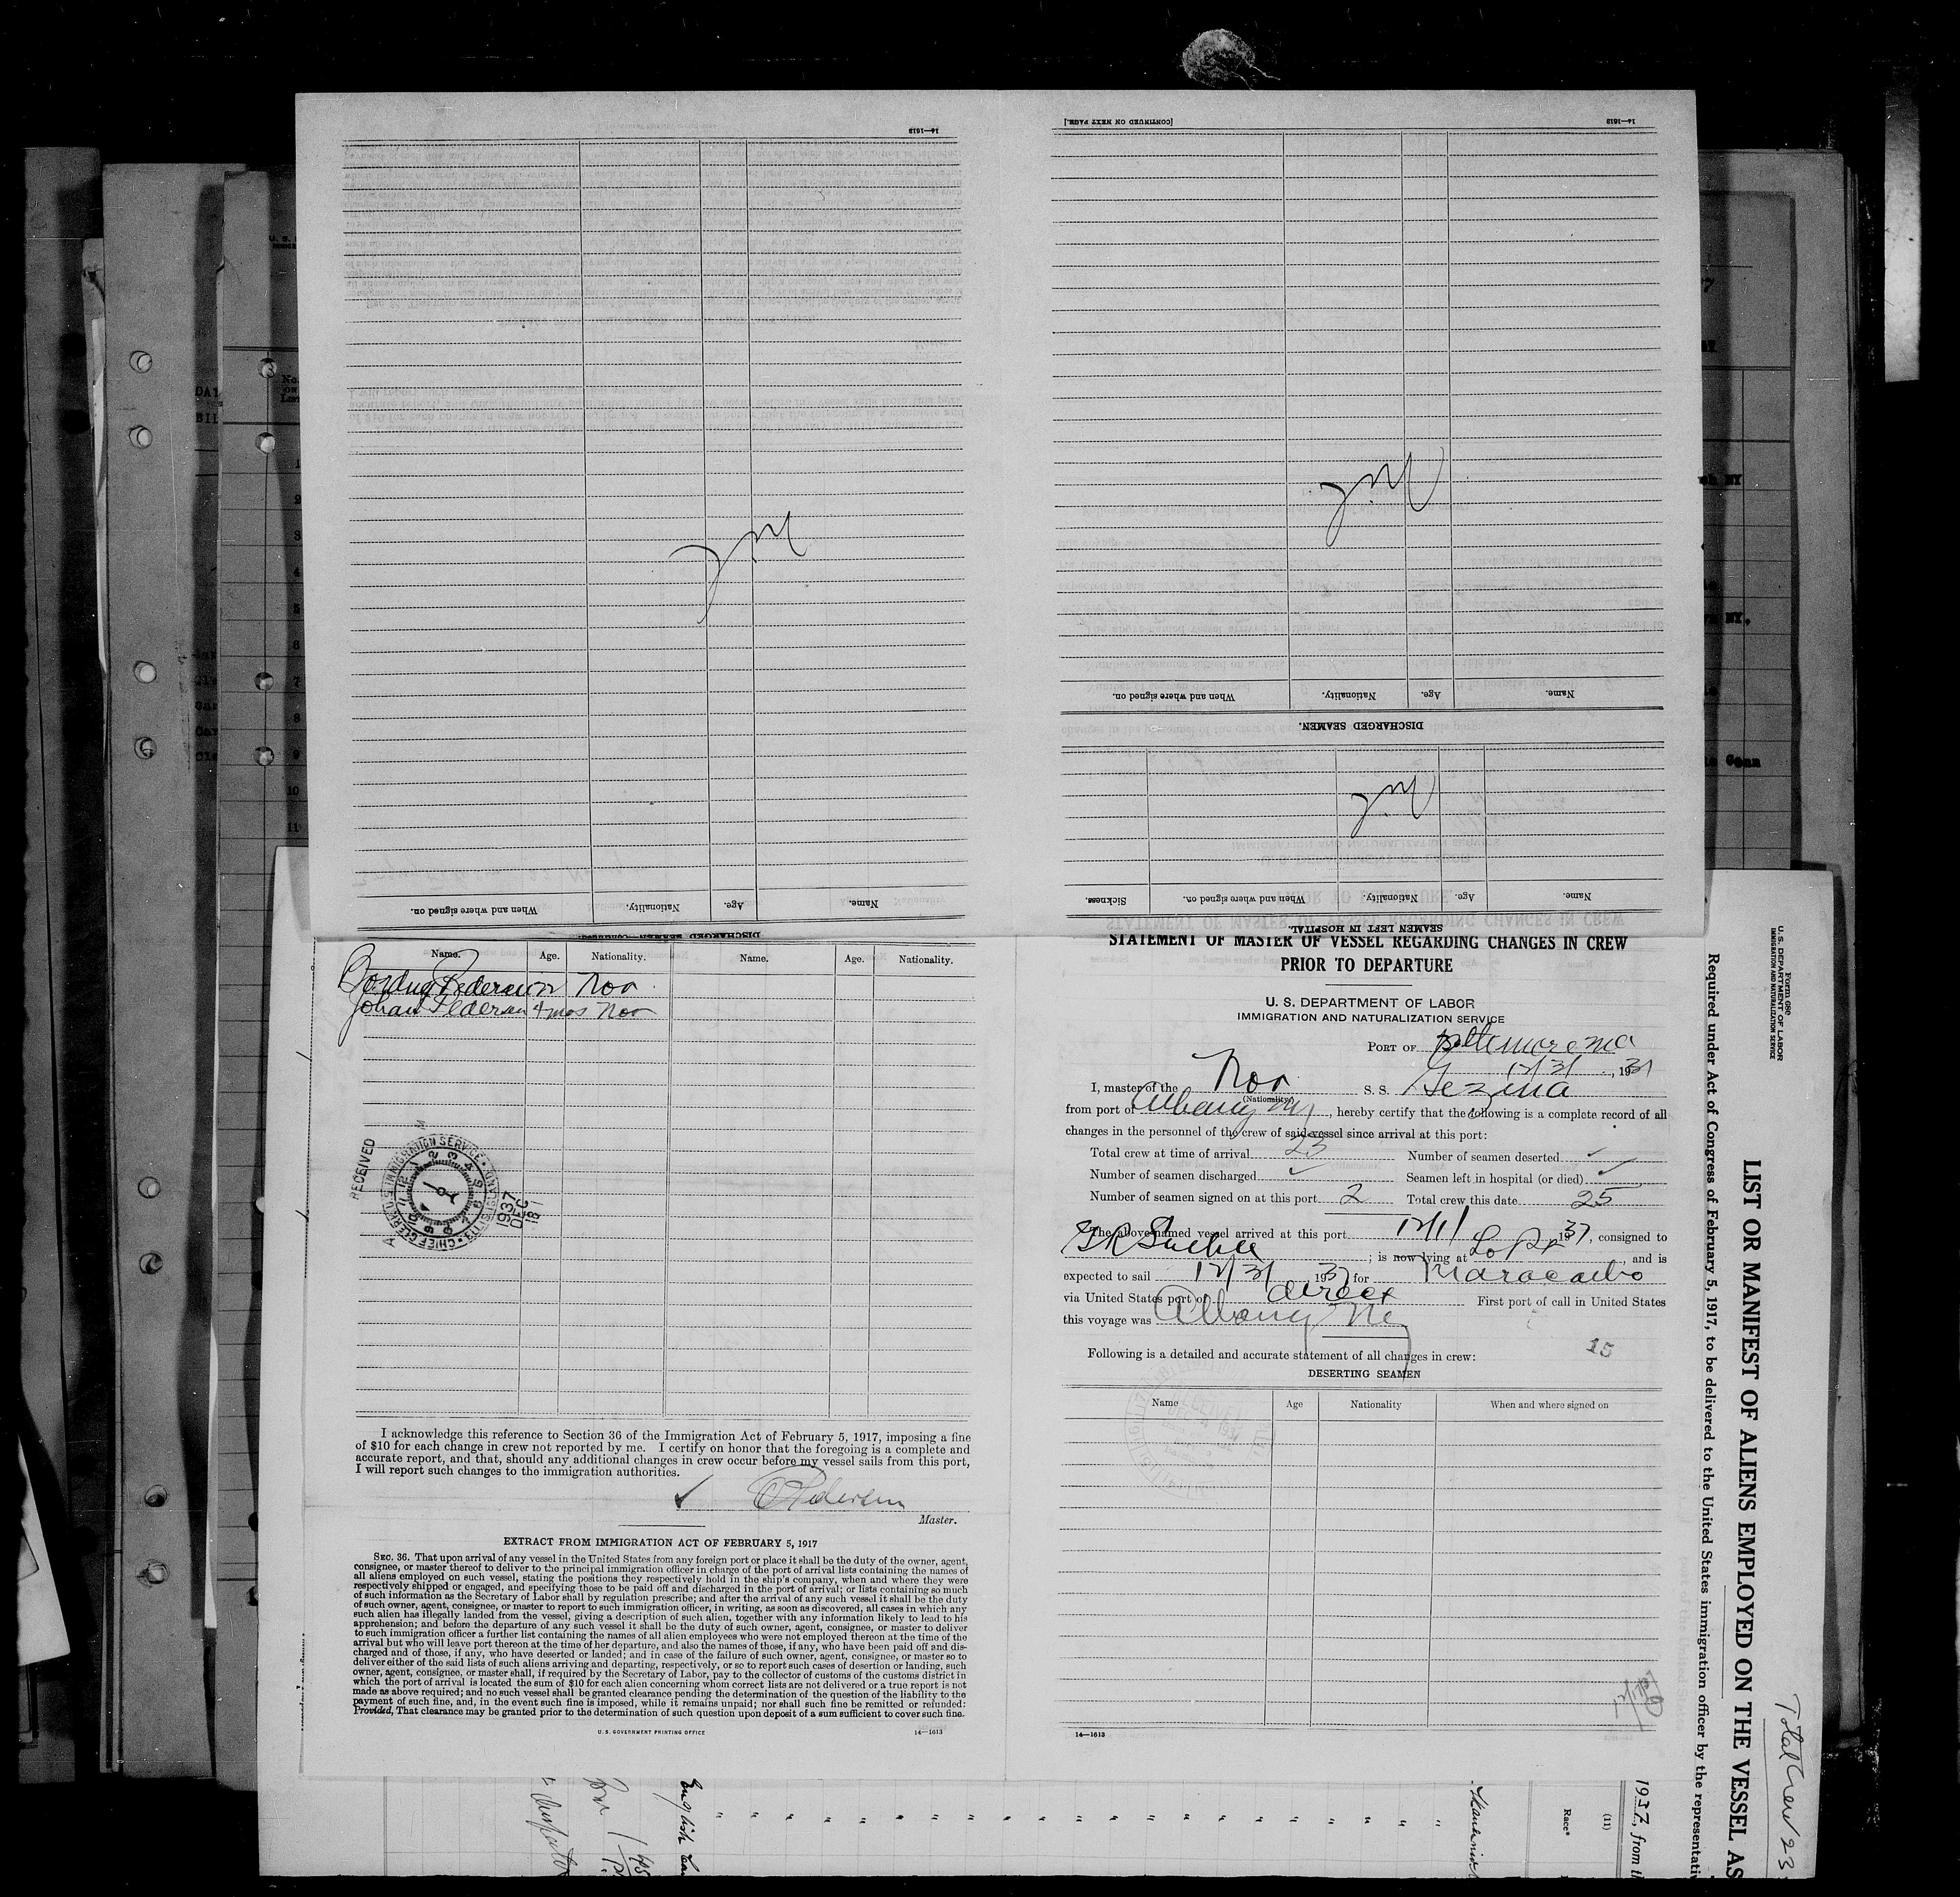 14—1613
When and where signed on.
Nationality.
Age.
Name.
[CONTINUED ON NEXT PAGE.]
14—1613
When and where signed on.
Nationality.
Age.
Name.
DISCHARGED SEAMEN.
Sickness.
When and where signed on.
Nationality.
Age.
Name.
SEAMEN LEFT IN HOSPITAL.
Name. Age. Nationality. Name. Age. Nationality.
Pedersen Nor
Johan Pedersen 4 mos Nor
RECEIVED
1937 DEC 31
I acknowledge this reference to Section 36 of the Immigration Act of February 5, 1917, imposing a fine
of $10 for each change in crew not reported by me. I certify on honor that the foregoing is a complete and
accurate report, and that, should any additional changes in crew occur before my vessel sails from this port,
I will report such changes to the immigration authorities.
Pedersen
Master.
EXTRACT FROM IMMIGRATION ACT OF FEBRUARY 5, 1917
SEC. 36. That upon arrival of any vessel in the United States from any foreign port or place it shall be the duty of the owner, agent,
consignee, or master thereof to deliver to the principal immigration officer in charge of the port of arrival lists containing the names of
all aliens employed on such vessel, stating the positions they respectively hold in the ship's company, when and where they were
respectively shipped or engaged, and specifying those to be paid off and discharged in the port of arrival; or lists containing so much
of such information as the Secretary of Labor shall by regulation prescribe; and after the arrival of any such vessel it shall be the duty
of such owner, agent, consignee, or master to report to such immigration officer, in writing, as soon as discovered, all cases in which any
such alien has illegally landed from the vessel, giving a description of such alien, together with any information likely to lead to his
apprehension; and before the departure of any such vessel it shall be the duty of such owner, agent, consignee, or master to deliver
to such immigration officer a further list containing the names of all alien employees who were not employed thereon at the time of the
arrival but who will leave port thereon at the time of her departure, and also the names of those, if any, who have been paid off and dis-
charged and of those, if any, who have deserted or landed; and in case of the failure of such owner, agent, consignee, or master so to
deliver either of the said lists of such aliens arriving and departing, respectively, or so to report such cases of desertion or landing, such
owner, agent, consignee, or master shall, if required by the Secretary of Labor, pay to the collector of customs of the customs district in
which the port of arrival is located the sum of $10 for each alien concerning whom correct lists are not delivered or a true report is not
made as above required; and no such vessel shall be granted clearance pending the determination of the question of the liability to the
payment of such fine, and, in the event such fine is imposed, while it remains unpaid; nor shall such fine be remitted or refunded:
Provided, That clearance may be granted prior to the determination of such question upon deposit of a sum sufficient to cover such fine.
U. S. GOVERNMENT PRINTING OFFICE 14—1613
STATEMENT OF MASTER OF VESSEL REGARDING CHANGES IN CREW
PRIOR TO DEPARTURE
U. S. DEPARTMENT OF LABOR
IMMIGRATION AND NATURALIZATION SERVICE
PORT OF Baltimore Md
12/31, 1937
I, master of the Nor S. S. Gezina
(Nationality)
from port of Albany Ny, hereby certify that the following is a complete record of all
changes in the personnel of the crew of said vessel since arrival at this port:
Total crew at time of arrival 23 Number of seamen deserted ✓
Number of seamen discharged ✓ Seamen left in hospital (or died) ✓
Number of seamen signed on at this port 2 Total crew this date 25
The above-named vessel arrived at this port 1937, consigned to
; is now lying at Lo Pt, and is
expected to sail 12/31 1937 for Maracaibo
via United States port of direct First port of call in United States
this voyage was Albany Ny
15
Following is a detailed and accurate statement of all changes in crew:
DESERTING SEAMEN
Name Age Nationality When and where signed on
14—1613
Form 689
U. S. DEPARTMENT OF LABOR
IMMIGRATION AND NATURALIZATION SERVICE
LIST OR MANIFEST OF ALIENS EMPLOYED ON THE VESSEL AS
Required under Act of Congress of February 5, 1917, to be delivered to the United States immigration officer by the representativ
Total Crew 23
1937, from th
(11)
Race*
English